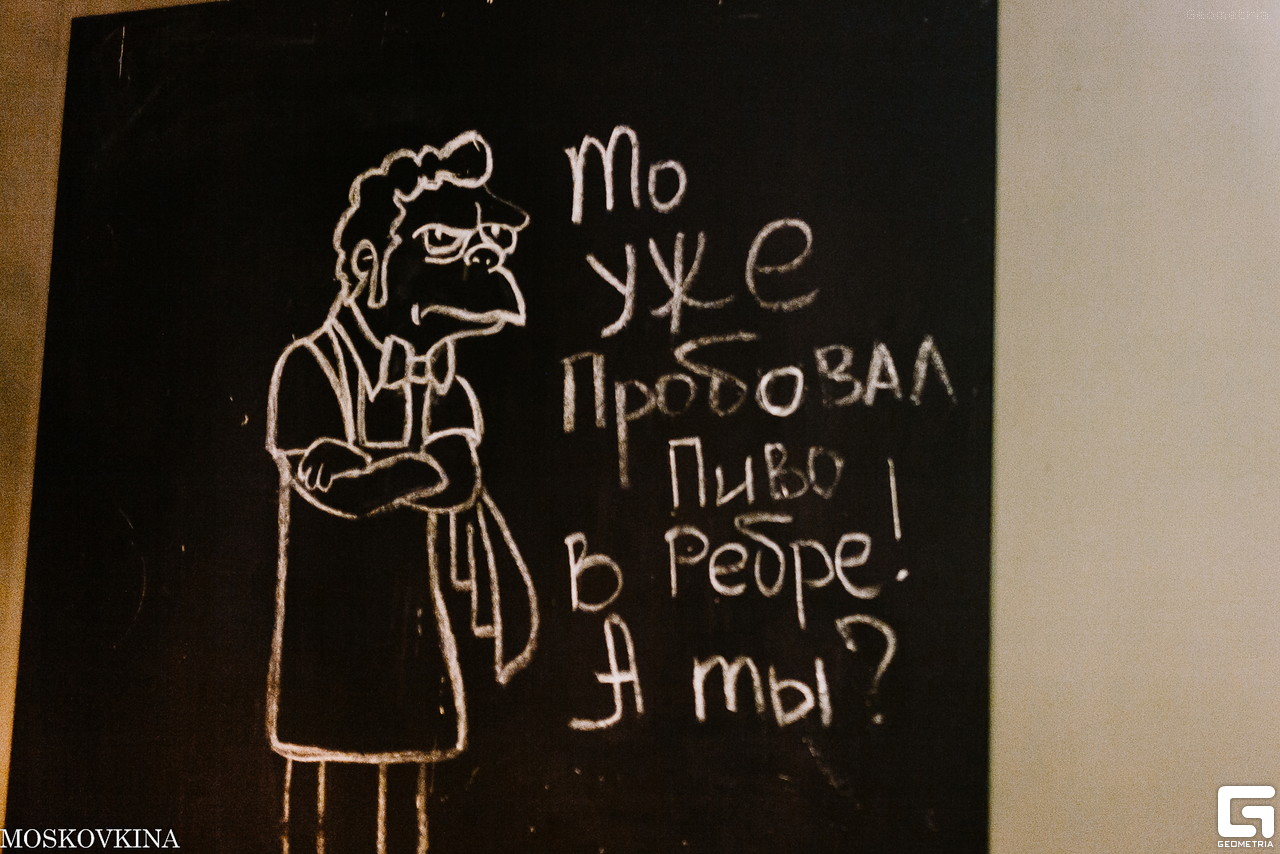 Мо
уже
Пробовал
Пиво
в Ребре!
А ты?
MOSKOVKINA
GEOMETRIA